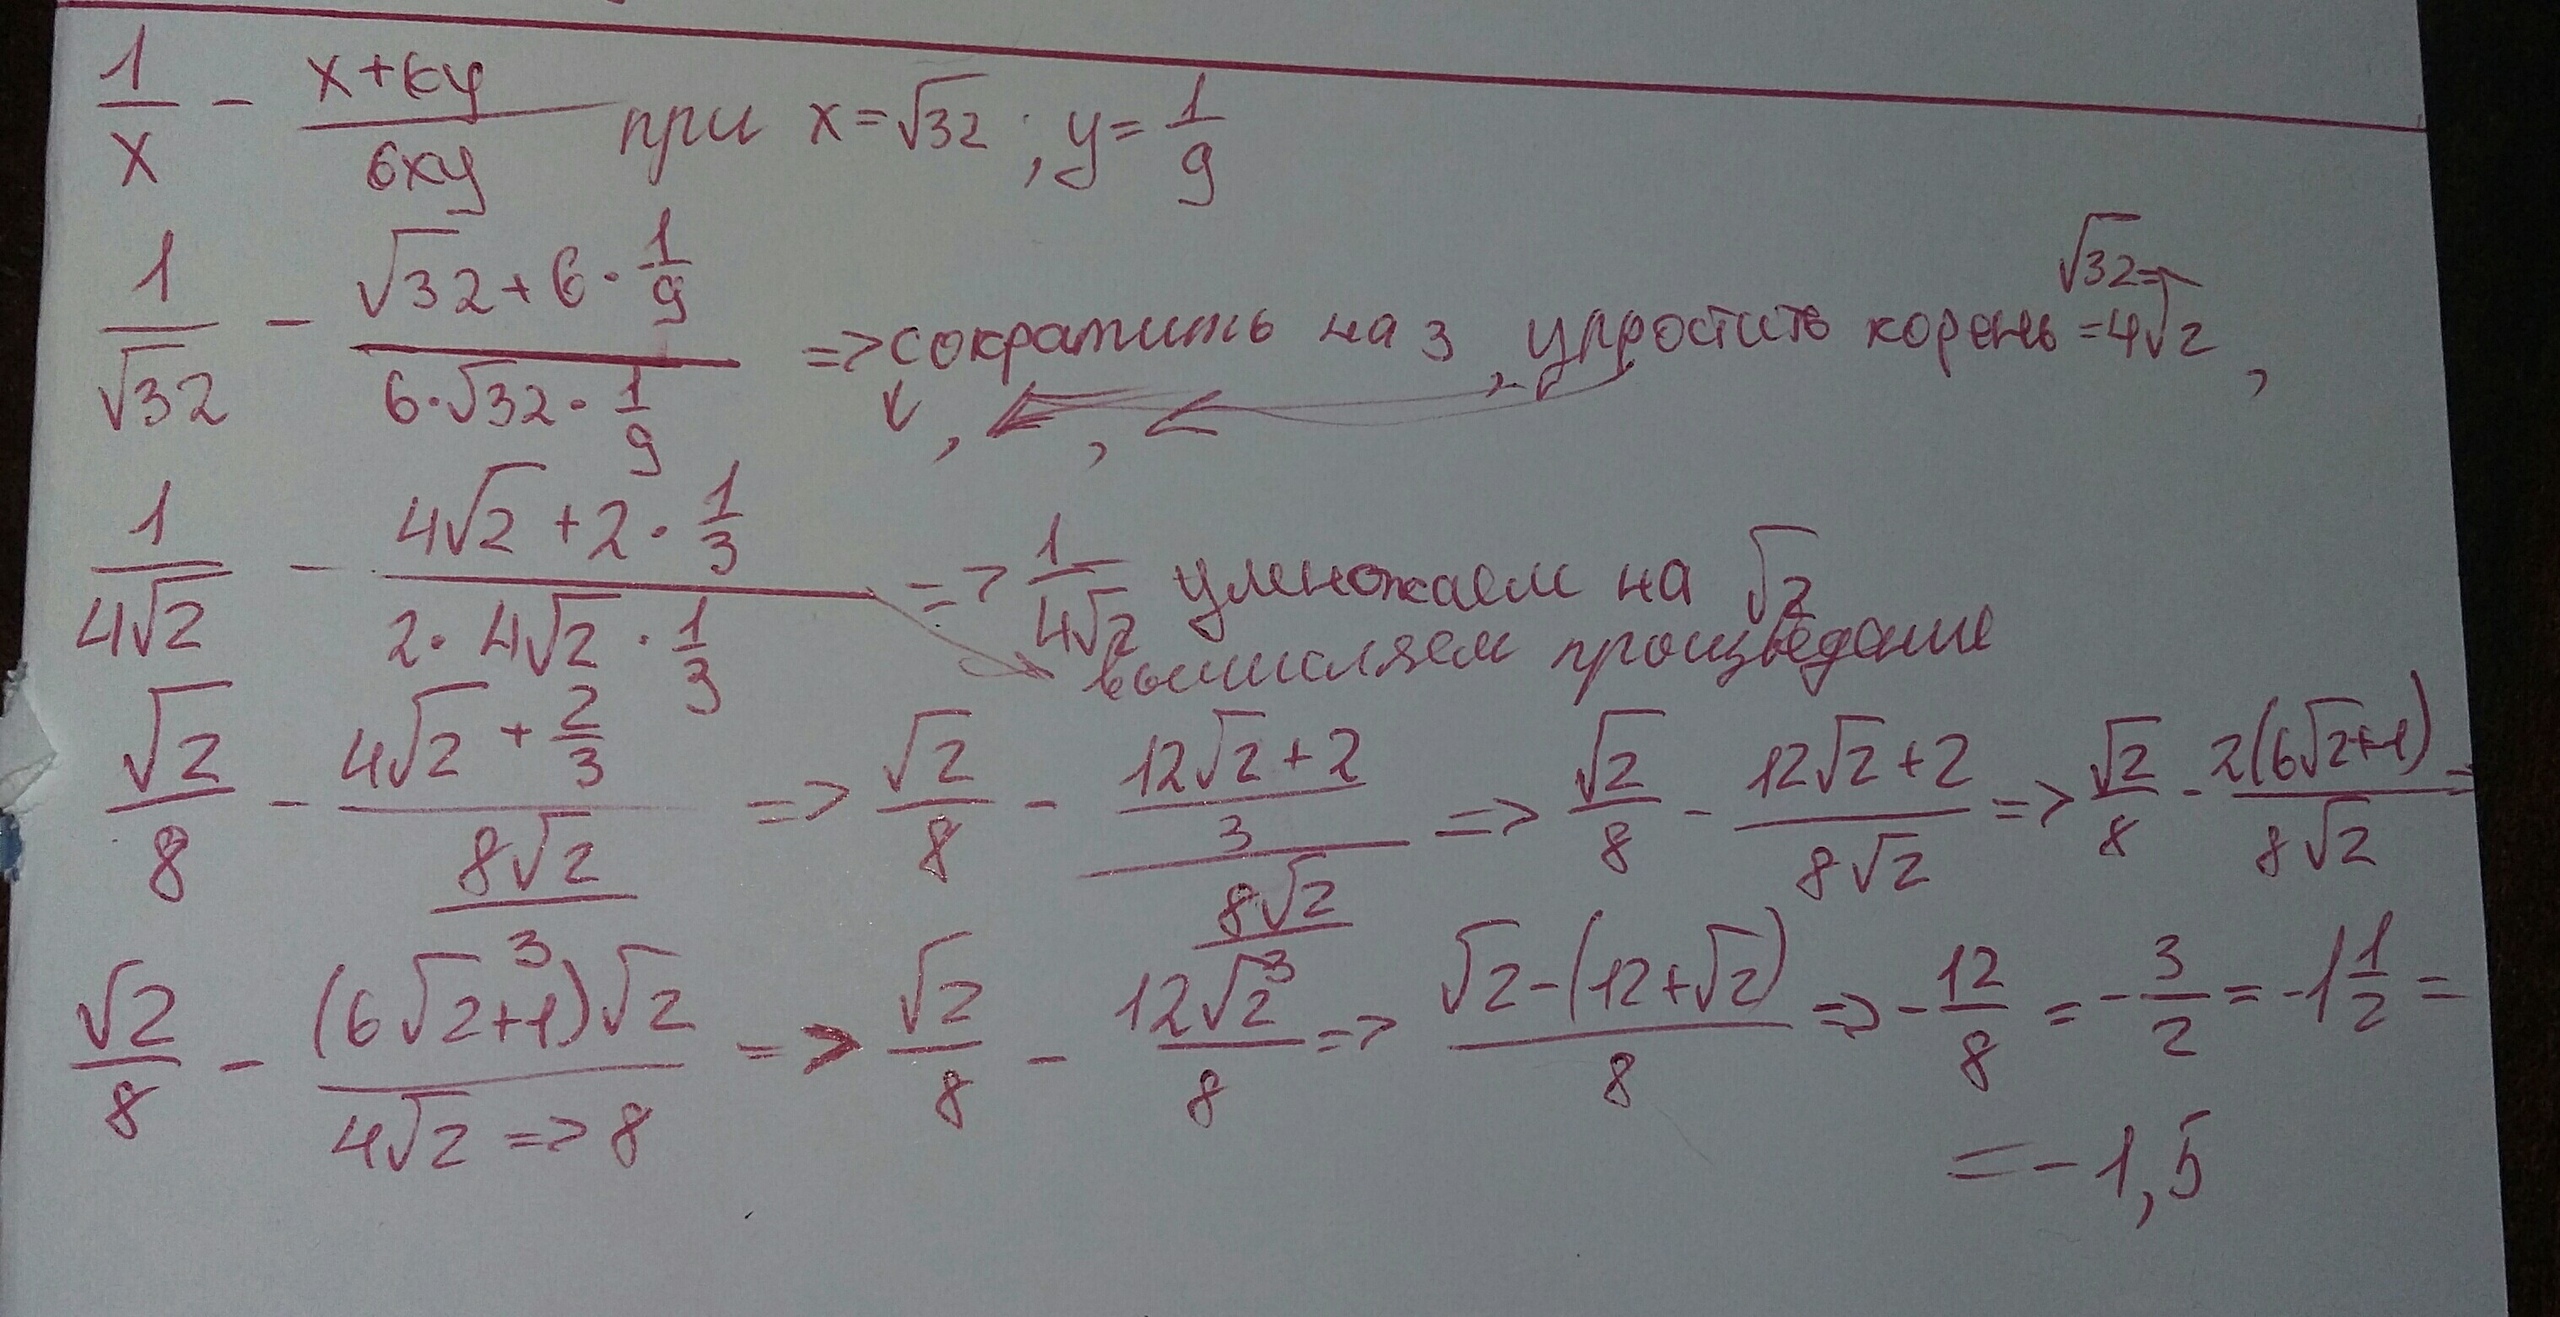 1/x - (x+6y)/(6xy) при x=√32 ; y=1/9
1/√32 - (√32+6·1/9)/(6·√32·1/9) => сократить на 3, упростить корень √32= =4√2,
1/(4√2) - (4√2+2·1/3)/(2·4√2·1/3) => 1/(4√2) умножаем на √2
вычисляем произведение
√2/8 - (4√2+2/3)/(8√2/3) => √2/8 - ((12√2+2)/3)/(8√2/3) => √2/8 - (12√2+2)/(8√2) => √2/8 - 2(6√2+1)/(8√2) =
√2/8 - (6√2+1)√2/(4√2 => 8) => √2/8 - 12√2/8 => (√2-(12+√2))/8 => -12/8 = -3/2 = -1 1/2 =
= -1,5